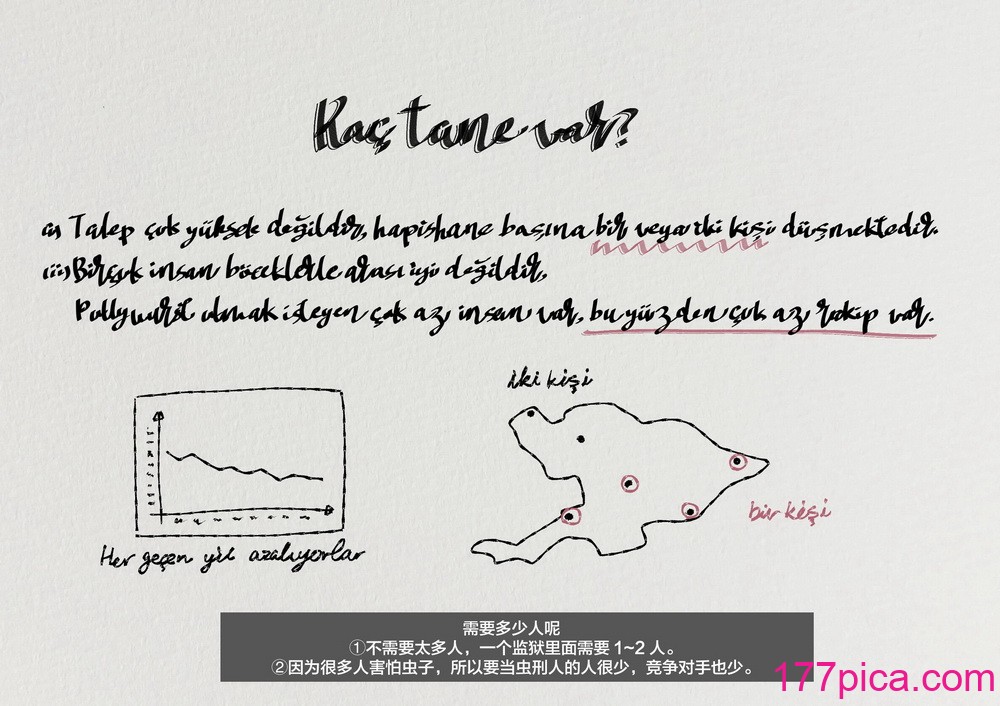 Kaç tane var?
(i) Talep çok yüksek değildir, hapishane başına bir veya iki kişi düşmektedir.
(ii) Birçok insan böceklerle arası iyi değildir,
olmak isteyen çok az insan var, bu yüzden çok az rakip var.
iki kişi
bir kişi
Her geçen yıl azalıyorlar
需要多少人呢
①不需要太多人，一个监狱里面需要 1~2 人。
②因为很多人害怕虫子，所以要当虫刑人的人很少，竞争对手也少。
177pica.com